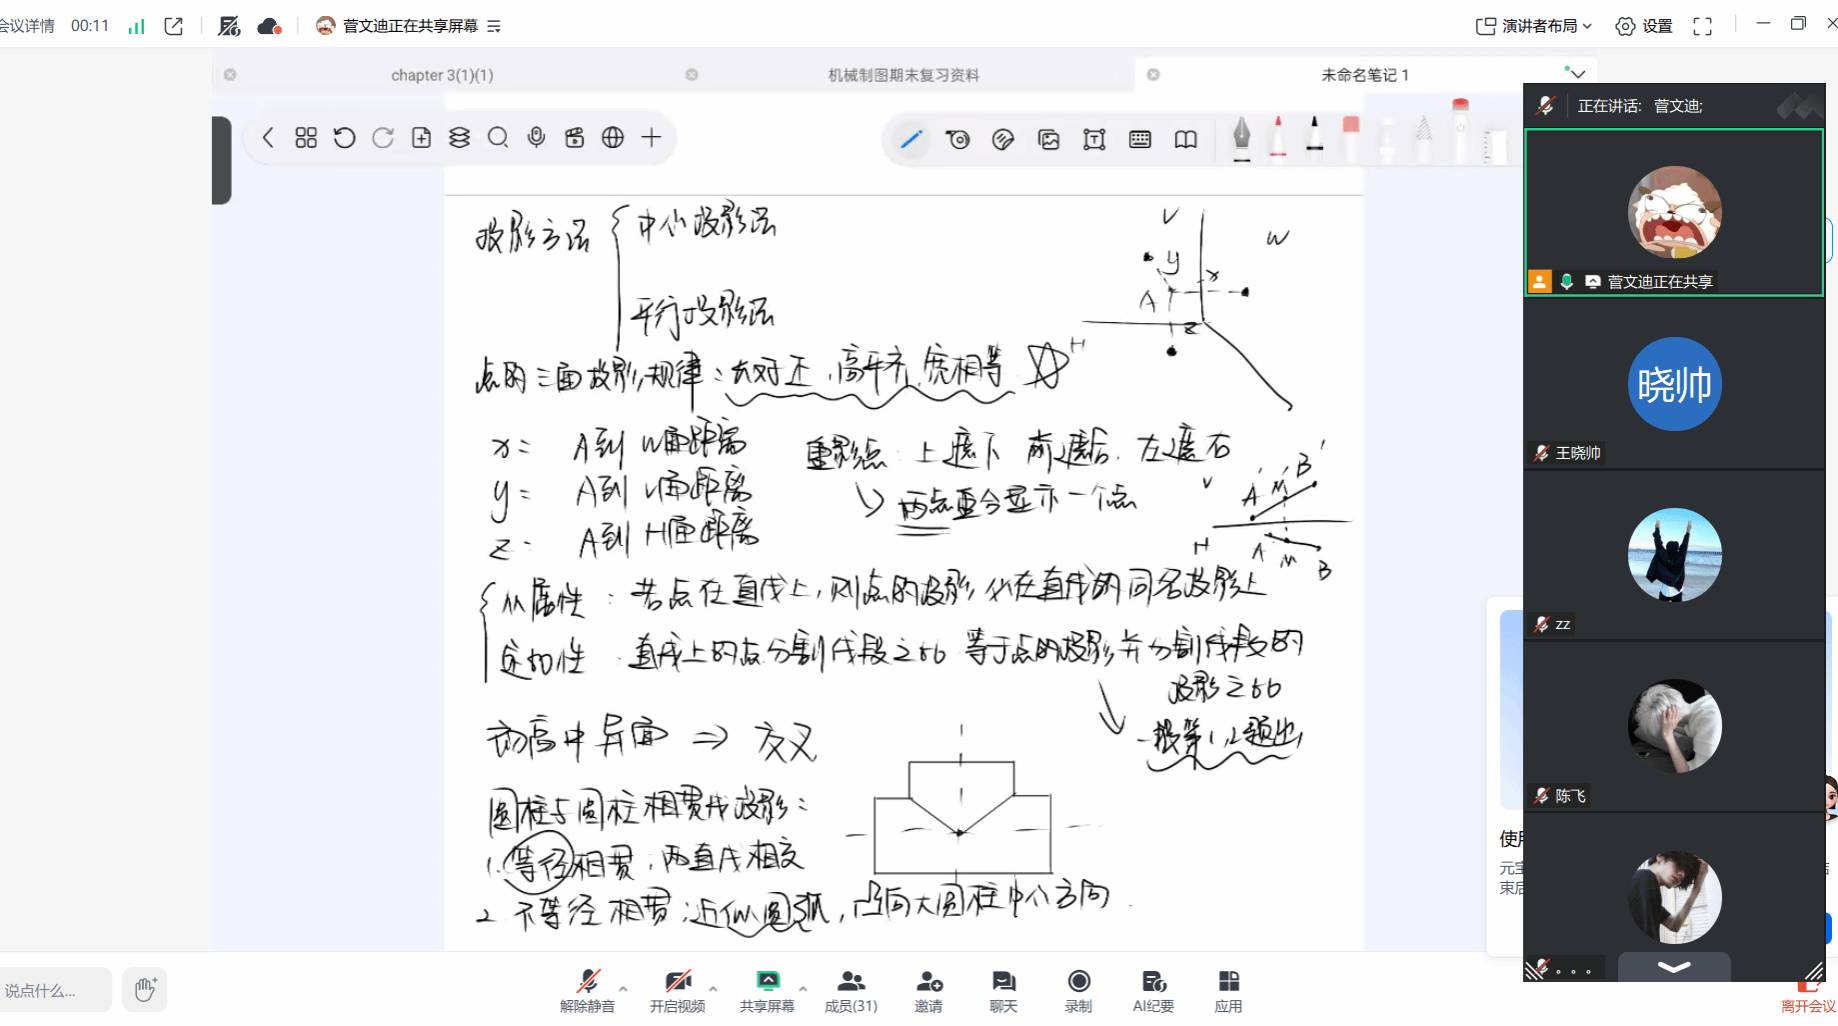 会议详情 00:11 菅文迪正在共享屏幕 演讲者布局 设置
chapter 3(1)(1) 机械制图期末复习资料 未命名笔记 1
正在讲话: 菅文迪;
菅文迪正在共享
晓帅
王晓帅
zz
陈飞
。。。
投影方法 中心投影法
平行投影法
V W
y x
A
z
H
点的三面投影规律: 长对正, 高平齐, 宽相等
x = A到W面距离
y = A到V面距离
z = A到H面距离
重影点: 上遮下 前遮后, 左遮右
两点重合显示一个点
V A' M' B'
H A M B
从属性: 若点在直线上, 则点的投影必在直线的同名投影上
定比性 直线上的点分割线段之比等于点的投影并分割线段的
投影之比
一般第1,2题出
初高中异面 ⇒ 交叉
圆柱与圆柱相贯线投影:
1. 等径相贯, 两直线相交
2. 不等径相贯: 近似圆弧, 凸向大圆柱中心方向.
使用
元宝
束后
说点什么...
解除静音 开启视频 共享屏幕 成员(31) 邀请 聊天 录制 AI纪要 应用 离开会议